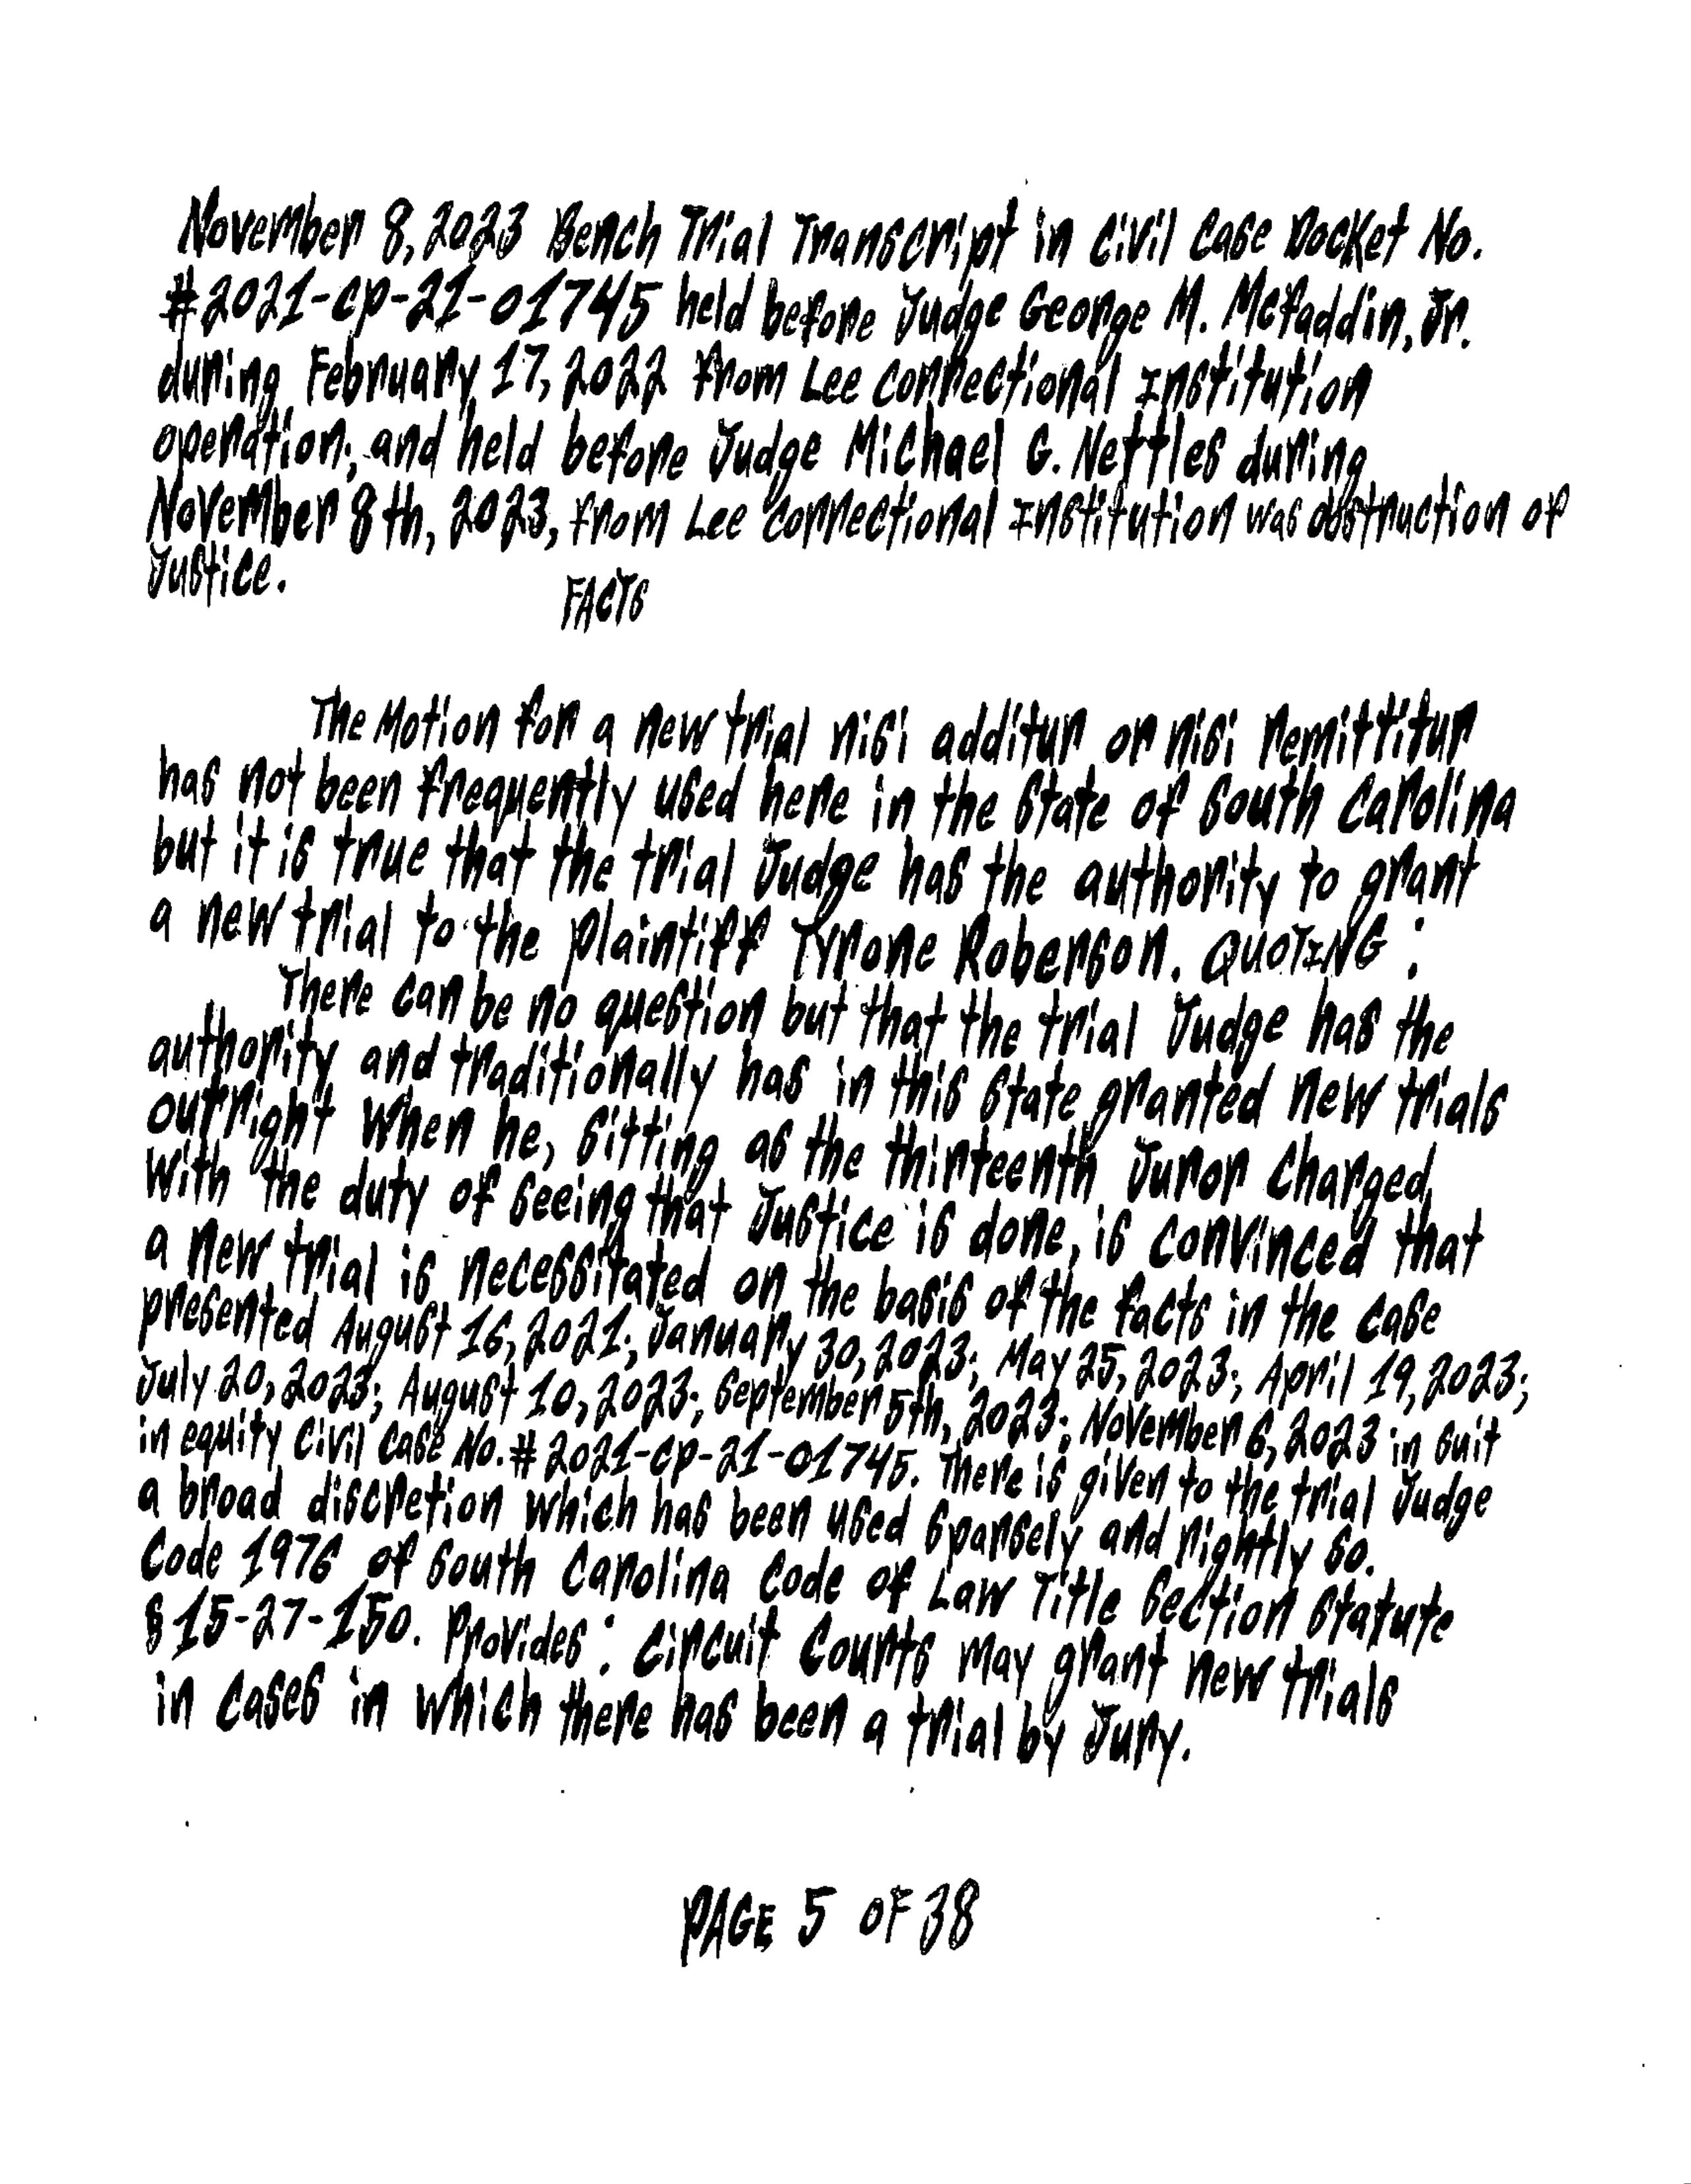 November 8, 2023 Bench Trial Transcript in civil case Docket No.
#2021-cp-21-01745 held before Judge George M. McFaddin, Jr.
during February 17, 2022 from Lee correctional Institution
operation; and held before Judge Michael G. Nettles during
November 8th, 2023, from Lee correctional Institution was obstruction of
Justice.
FACTS
The Motion for a new trial nisi additur or nisi remittitur
has not been frequently used here in the State of South Carolina
but it is true that the trial Judge has the authority to grant
a new trial to the plaintiff Tyrone Roberson. QUOTING:
There can be no question but that the trial Judge has the
authority and traditionally has in this State granted new trials
outright when he, sitting as the thirteenth Juror Charged
with the duty of seeing that Justice is done, is convinced that
a new trial is necessitated on the basis of the facts in the case
presented August 16, 2021; January 30, 2023; May 25, 2023; April 19, 2023;
July 20, 2023; August 10, 2023; September 5th, 2023; November 6, 2023 in suit
in equity Civil Case No. #2021-cp-21-01745. There is given to the trial Judge
a broad discretion which has been used sparsely and rightly so.
Code 1976 of South Carolina Code of Law Title Section Statute
§ 15-27-150. Provides: Circuit Courts may grant new trials
in cases in which there has been a trial by Jury.
PAGE 5 OF 38